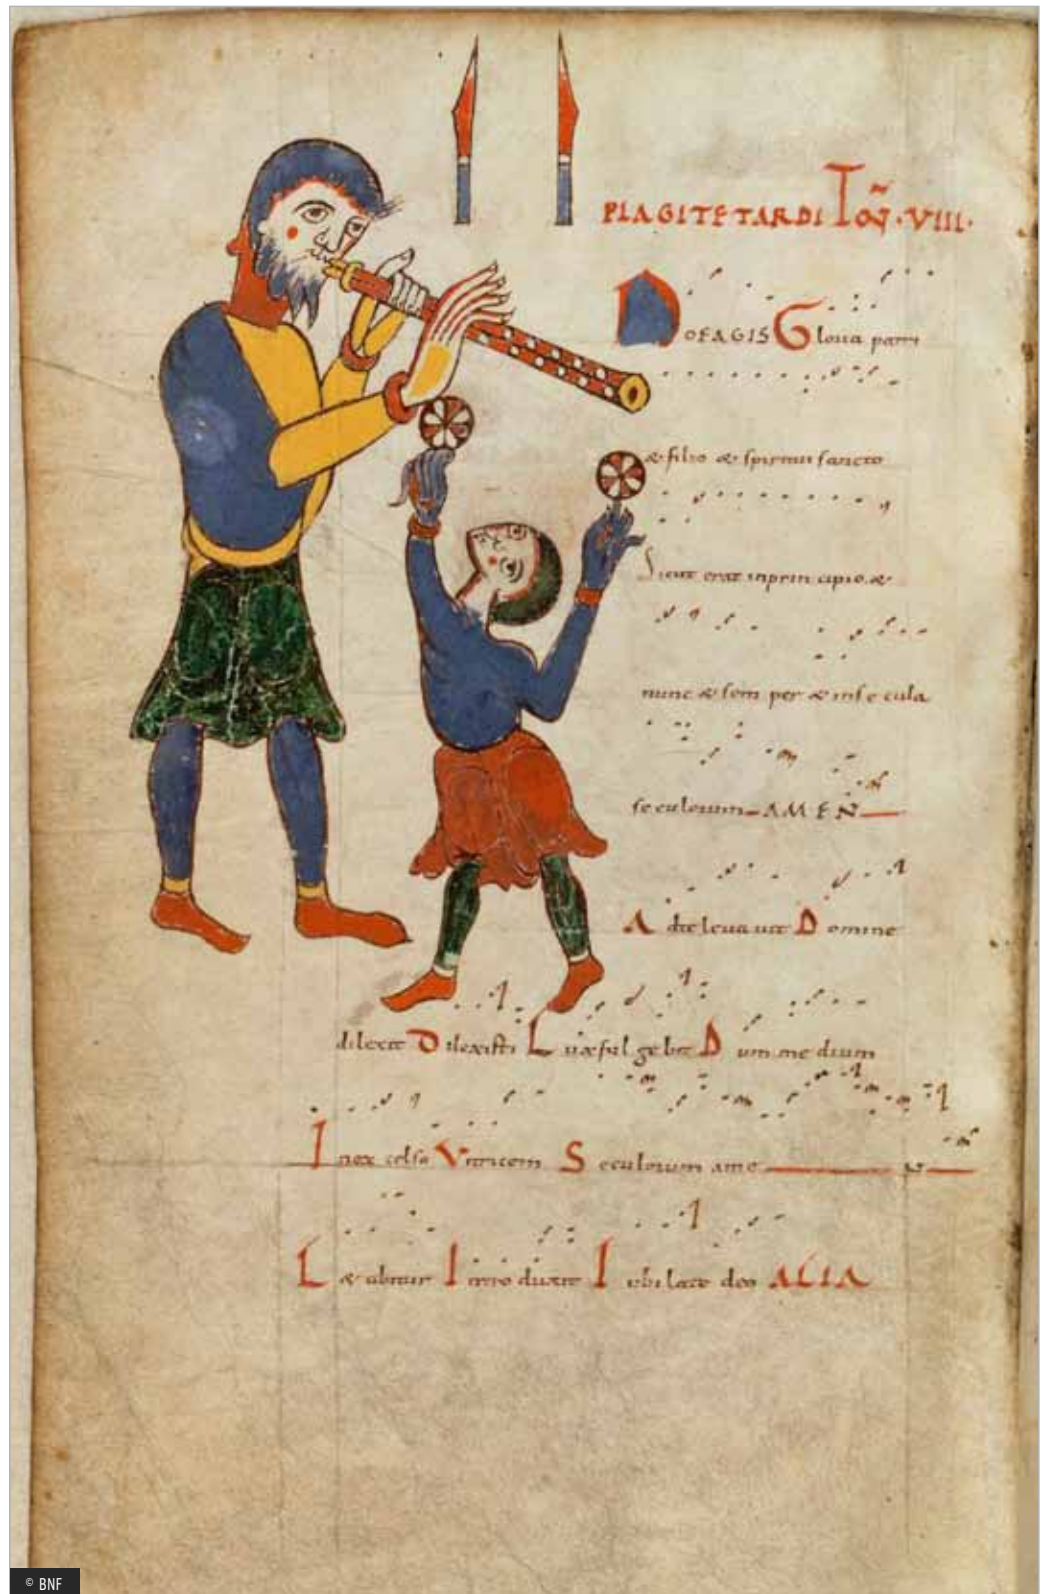 PLAGITETARDI Toñ · VIII ·
NOFAGIS Gloria patri
& filio & spiritui sancto
Sicut erat inprincipio. &
nunc & sem per & inse cula
seculorum AMEN
Adteleuauit Domine
dilexit Dilexisti Luxfulgebit Dum me dium
Inex celso Viricem Seculorum ame N
Lætabitur Introduxit Iubilate deo ALLA
© BNF